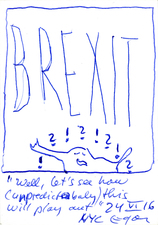 BREXIT
? ! ? ! ? ! ?
"well, let's see how
(unpredictabaly) this
will play out" 24 VI 16
NYC